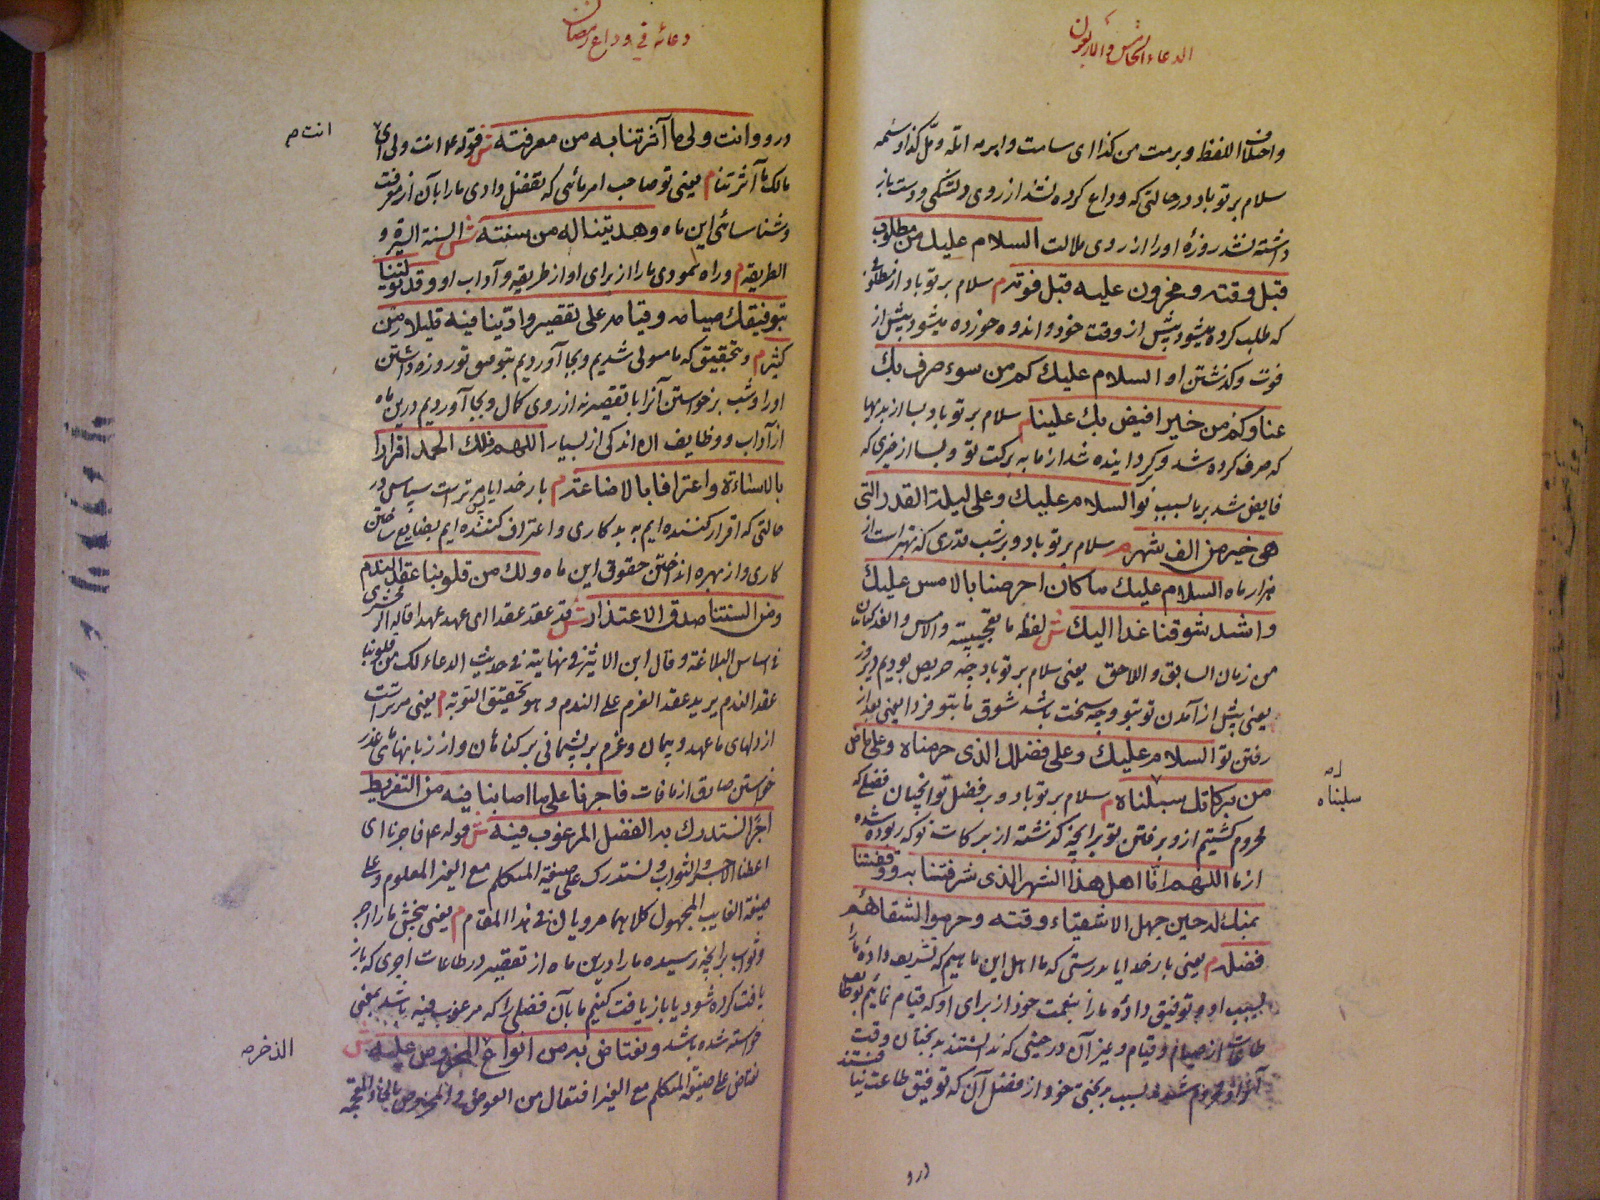 الدعاء الخامس والاربعون
واختلاف اللفظ وبرمت من كذا اى سامت وابرمه املّه وملّ كذا وسئمه
سلام بر تو باد در حالتى كه وداع كرده نشد از روى دلتنگى ودست باز
داشته نشد روزۀ او را از روى ملالت السلام عليك من مطلوب
قبل وقته ومحزون عليه قبل فوته م سلام بر تو باد از مطلوبى
كه طلب كرده ميشود پيش از وقت خود واندوه خورده ميشود پيش از
فوت وكذشتن او السلام عليك كم من سوء صرف بك
عنا وكم من خير افيض بك علينا م سلام بر تو باد بسا از بديها
كه صرف كرده شد وكردانيده شد از ما به بركت تو وبسا از خيرى كه
فايض شد بر ما بسبب تو السلام عليك وعلى ليلة القدر التى
هى خير من الف شهر م سلام بر تو باد وبر شب قدرى كه بهتر است از
هزار ماه السلام عليك ما كان احرصنا بالامس عليك
واشد شوقنا غدا اليك ش لفظ ما تعجبيه والامس والغد كنايتان
من زمان السابق واللاحق يعنى سلام بر تو باد چه حريص بوديم ديروز
يعنى پيش از آمدن تو بتو وچه سخت باشد شوق ما بتو فردا يعنى بعد از
رفتن تو السلام عليك وعلى فضلك الذى حرمناه وعلى ماض
من بركاتك سلبناه م سلام بر تو باد وبر فضل تو آنچنان فضلى كه
محروم كشتيم از او برفتن تو بر آنچه كذشته از بركات تو كه ربوده شده
از ما اللهم انّا اهل هذا الشهر الذى شرفتنا به ووفقتنا
بمنك له حين جهل الاشقياء وقته وحرموا لشقائهم
فضله م يعنى بار خدايا بدرستى كه ما اهل اين ماهيم كه تشريف دادۀ ما را
بسبب او وتوفيق دادۀ ما را بنعمت خود از براى او كه قيام نمائيم بوظايف
طاعات از صيام وقيام وغير آن در حينى كه ندانستند بدبختان وقت
آنرا ومحروم شدند بسبب بدبختى خود از فضل آن كه توفيق طاعت نيافتند
له
سلبناه
درو
دعائه فى وداع رمضان
درو وانت ولى ما آثرتنا به من معرفته ش قوله ع انت ولى اى
مالك ما آثرتنا م يعنى تو صاحب امر مائى كه تفضل دادى ما را بآن از معرفت
وشناسائى اين ماه وهديتنا له من سنته ش السنة السيرة و
الطريقة م وراه نمودى ما را از براى او از طريقه وآداب او وقد تولينا
بتوفيقك صيامه وقيامه على تقصير وادّينا فيه قليلا من
كثير م وبتحقيق كه ما متولى شديم وبجا آورديم بتوفيق تو روزه داشتن
او را وشب برخواستن آنرا با تقصير نه از روى كمال وبجا آورديم درين ماه
از آداب ووظايف آن اندكى از بسيار اللهم فلك الحمد اقرارا
بالاساءة واعترافا بالاضاعة م بار خدايا پس مر تراست سپاس در
حالتى كه اقرار كننده ايم به بدكارى واعتراف كننده ايم بضايع ساختن
كارى واز بهره انداختن حقوق اين ماه ولك من قلوبنا عقد الندم
ومن السنتنا صدق الاعتذار ش قد عقد عقدا اى عهد عهدا قاله الزمخشرى
فى اساس البلاغة وقال ابن الاثير فى نهايته فى حديث الدعاء لك من قلوبنا
عقد الندم يريد عقد العزم على الندم وهو تحقيق التوبة م يعنى مر تراست
از دلهاى ما عهد وپيمان وعزم بر پشيمانى بر كناهان واز زبانهاى عذر
خواستن صادق از مافات فاجرنا على ما اصابنا فيه من التفريط
اجرا نستدرك به الفضل المرغوب فيه ش قوله ع فاجرنا اى
اعطنا الاجر والثواب ونستدرك على صيغة المتكلم مع الغير المعلوم وعلى
صيغة الغايب المجهول كلاهما مرويان فى هذا المقام م يعنى ببخش ما را اجر
وثواب بر آنچه رسيده ما را درين ماه از تقصير در طاعات اجرى كه باز
يافت كرده شود يا باز يافت كنيم ما بآن فضلى را كه مرغوب فيه باشد يعنى
خواسته شده باشد ونعتاض به من انواع المحروص عليه ش
نعتاض على صيغة المتكلم مع الغير افتعال من العوض والمحروص بالحاء المهملة
انت م
الذخر م